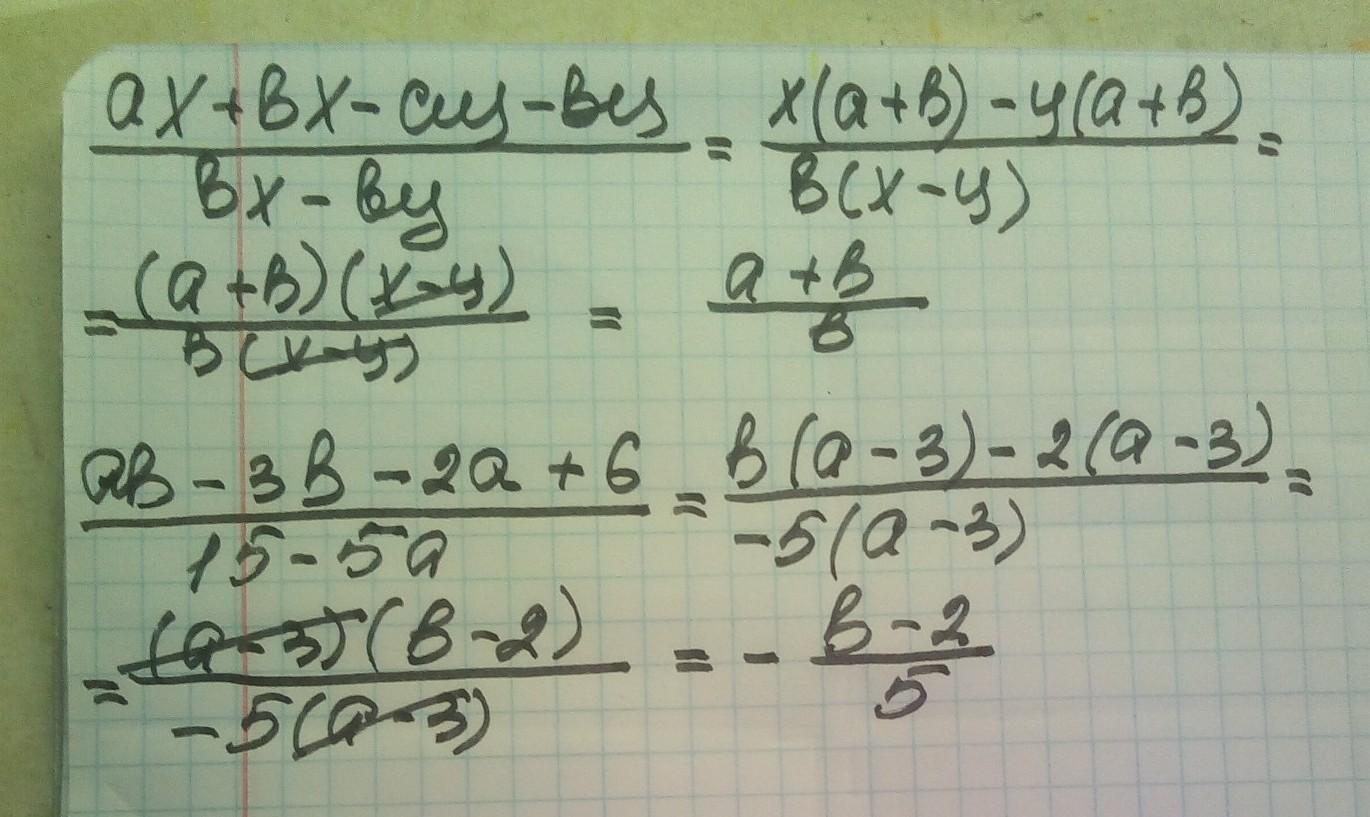 (ax + bx - ay - by)/(bx - by) = (x(a + b) - y(a + b))/(b(x - y)) =
= ((a + b)(x - y))/(b(x - y)) = (a + b)/b
(ab - 3b - 2a + 6)/(15 - 5a) = (b(a - 3) - 2(a - 3))/(-5(a - 3)) =
= ((a - 3)(b - 2))/(-5(a - 3)) = - (b - 2)/5